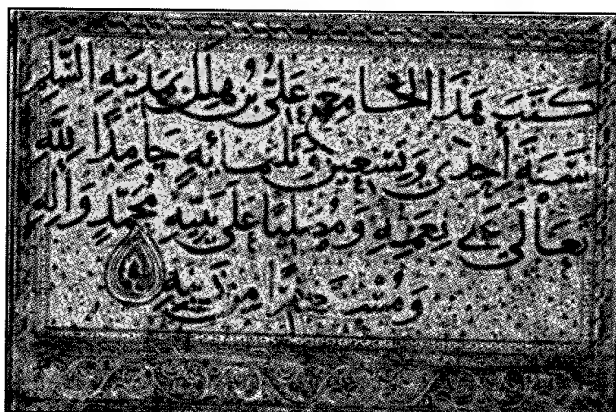 كتب هذا الجامع علي بن هلال بمدينة السلم
سنة إحدى وتسعين وثلثمائة حامدًا لله
تعالى على نعمه ومصليًا على نبيه محمد وآله
ومستغفرًا من ذنبه